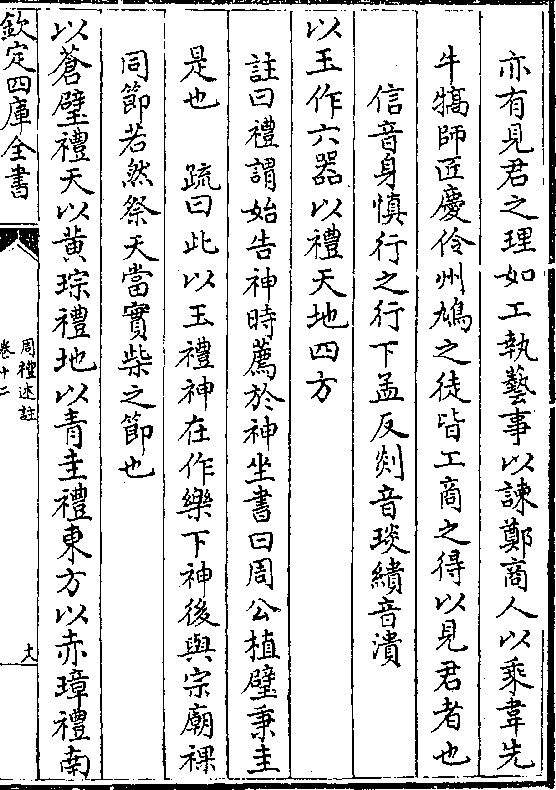 亦有見君之理如工執藝事以諫鄭商人以乘韋先
牛犒師匠慶伶州鳩之徒皆工商之得以見君者也
信音身慎行之行下孟反剡音琰繢音潰
以玉作六器以禮天地四方
註曰禮謂始告神時薦於神坐書曰周公植璧秉圭
是也　疏曰此以玉禮神在作樂下神後與宗廟祼
同節若然祭天當實柴之節也
以蒼璧禮天以黃琮禮地以青圭禮東方以赤璋禮南
欽定四庫全書
周禮述註
卷十二